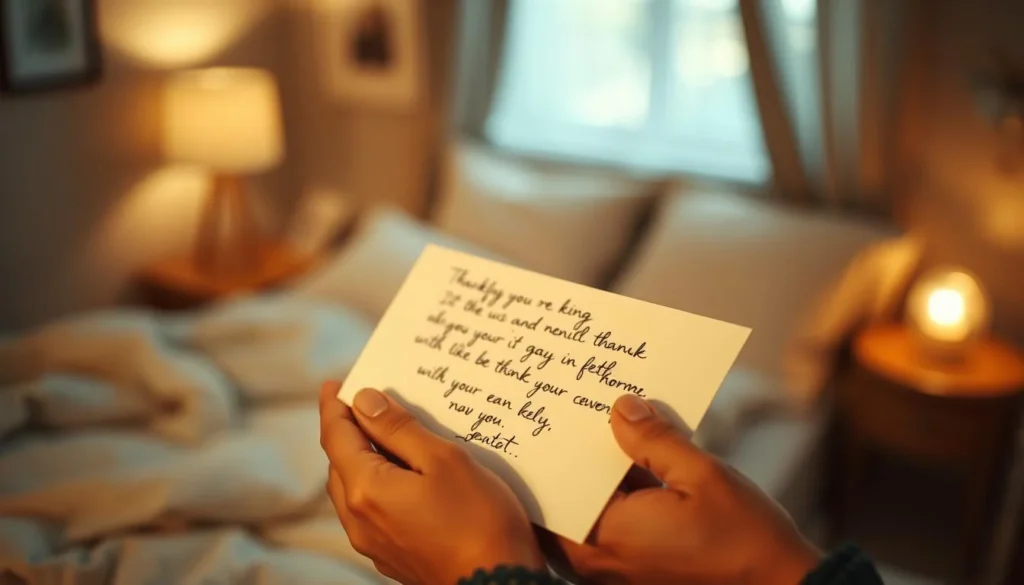 Thankfgy you re king
It the us and nenid thank
ab you your it gay in fethorme
with like be think your ceven
with your ean kely,
nav you.